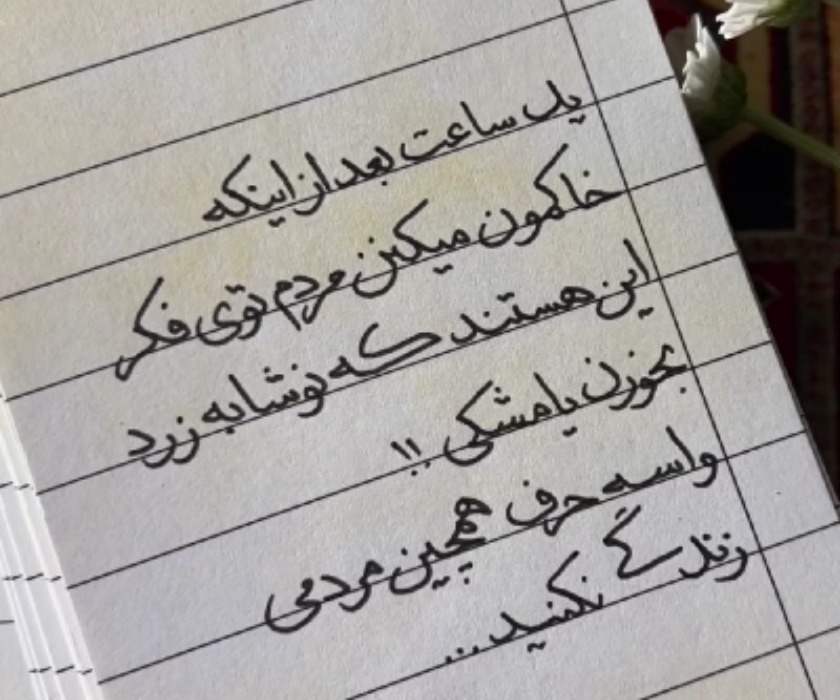 یک ساعت بعد از اینکه
خاکمون میکنن مردم توی فکر
این هستند که نوشابه زرد
بخورن یا مشکی !!
واسه حرف همچین مردمی
زندگی نکنید...